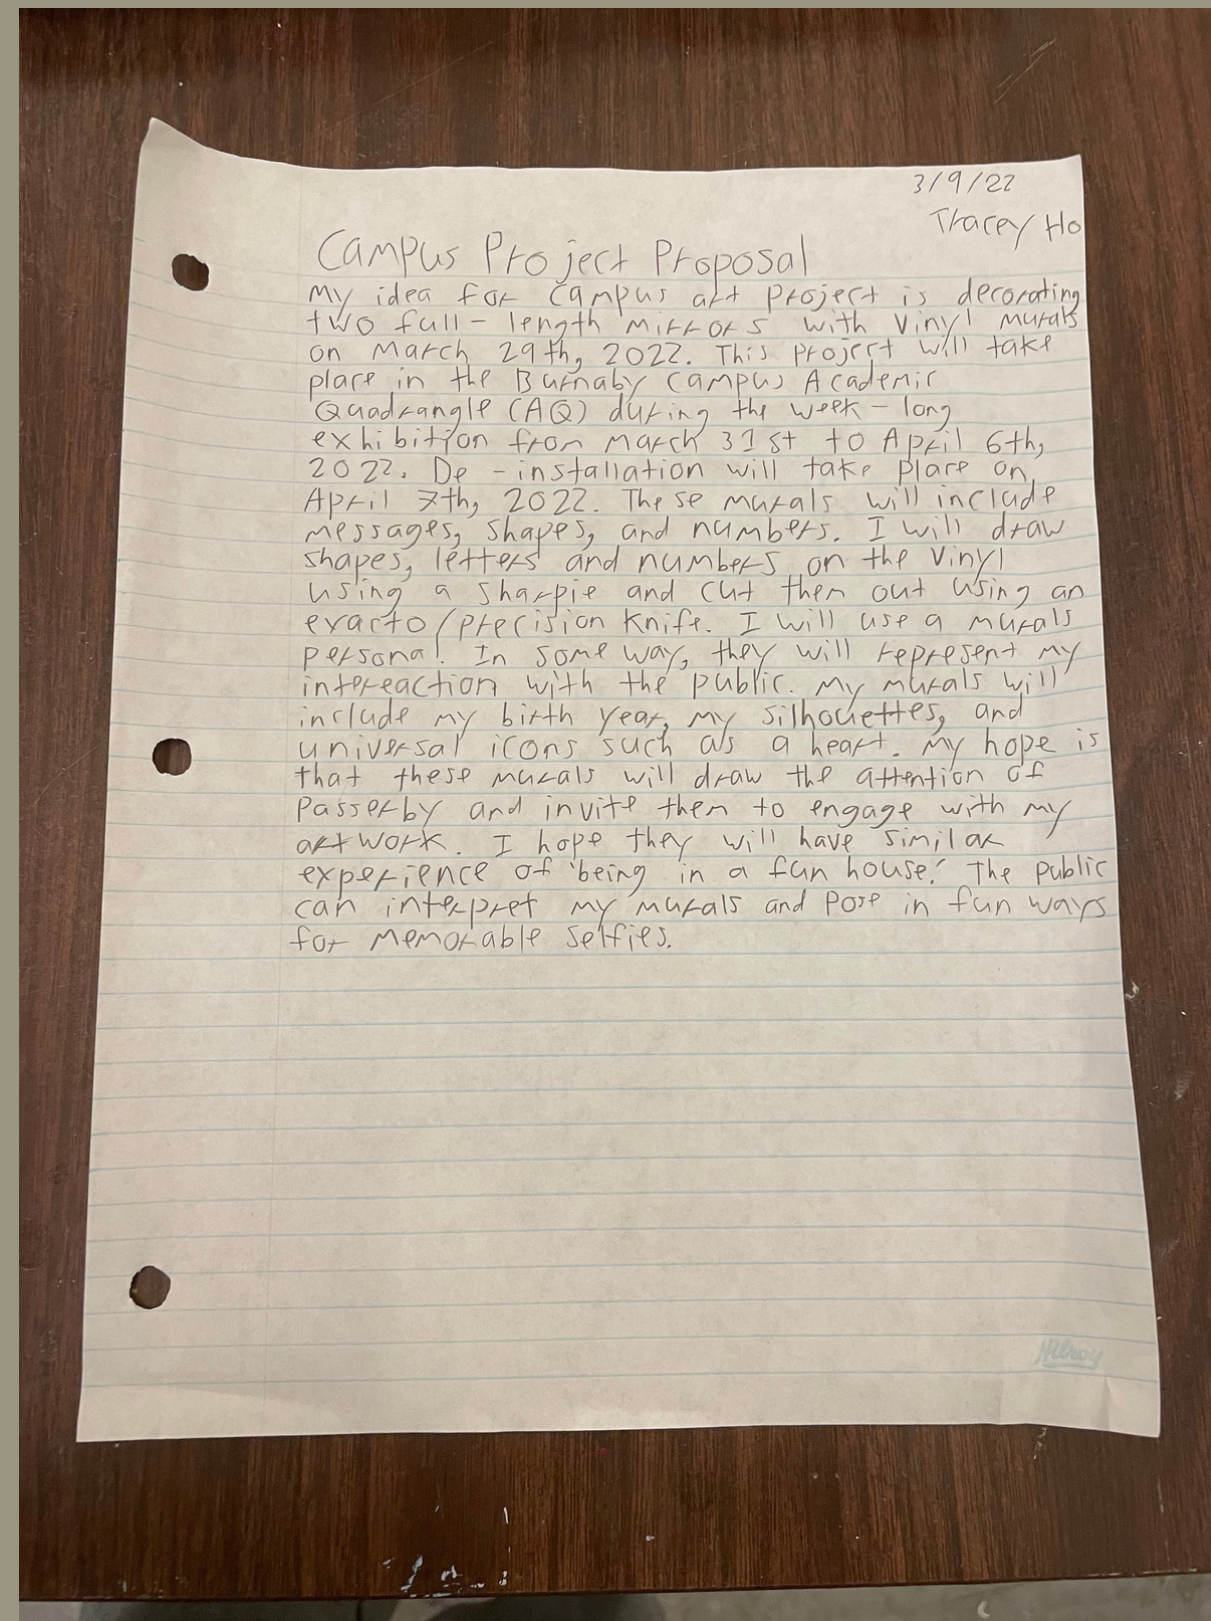 3/9/22
Tracey Ho
Campus Project Proposal
My idea for campus art project is decorating
two full-length mirrors with vinyl murals
on March 29th, 2022. This project will take
place in the Burnaby Campus Academic
Quadrangle (AQ) during the week-long
exhibition from March 31st to April 6th,
2022. De-installation will take place on
April 7th, 2022. These murals will include
messages, shapes, and numbers. I will draw
shapes, letters and numbers on the vinyl
using a sharpie and cut them out using an
exacto/precision knife. I will use a murals
personal. In some way, they will represent my
intereaction with the public. My murals will
include my birth year, my silhouettes, and
universal icons such as a heart. My hope is
that these murals will draw the attention of
passerby and invite them to engage with my
artwork. I hope they will have similar
experience of 'being in a fun house.' The public
can interpret my murals and pose in fun ways
for memorable selfies.
Hilroy